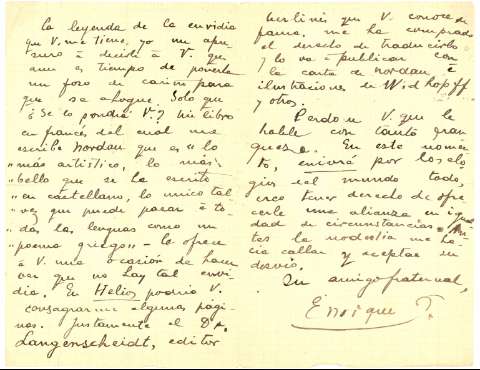 la leyenda de la envidia
que V. me tiene, yo me apre-
suro á decirle á V. que
aun es tiempo de ponerle
un foso de cariño para
que se ahogue. Solo que
¿Se lo pondrá V.? Mi libro
en francés del cual me
escribe Nordau que es «lo
«más artístico, lo más
«bello que se ha escrito
«en castellano, lo unico tal
«vez que puede pasar á to-
«das las lenguas como un
«poema griego» — le ofrece
á V. una ocasión de hacer
ver que no hay tal envi-
dia. En Helios podria V.
consagrarme algunas pági-
nas. Justamente el Dr.
Langenscheidt, editor
berlinés que V. conoce de
fama, me ha comprado
el derecho de traducirlo
y lo va á publicar con
la carta de Nordau é
ilustraciones de
y otros.
Perdone V. que le
hable con tanta fran
queza. En este momen
to, por los elo
gios del mundo todo,
creo tener derecho de ofre
cerle una alianza en igual
dad de circunstancias. An
tes la modestia me ha
cia callar y aceptar su
desvio.
Su amigo fraternal,
Enrique